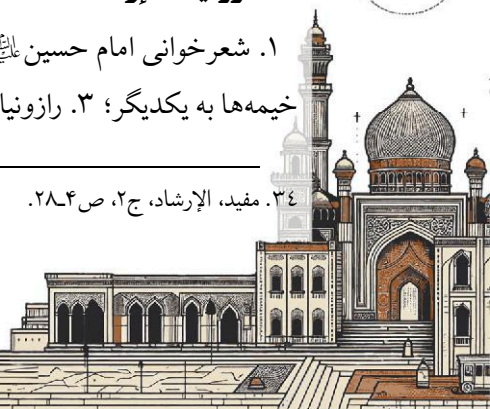 ۱. شعرخوانی امام حسین علیه‌السلام
خیمه‌ها به یکدیگر؛ ۳. رازونیا
۳٤. مفید، الإرشاد، ج۲، ص۴ـ۲۸.